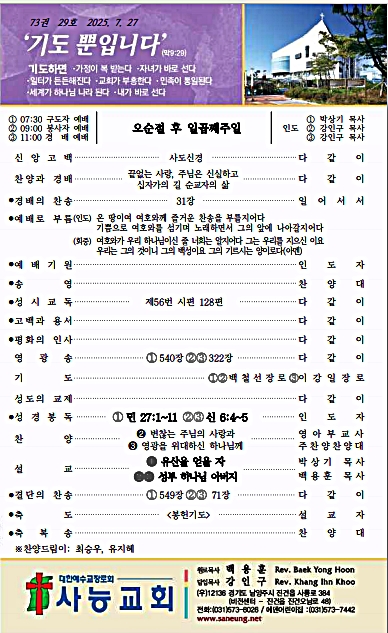 73권 29호 2025. 7. 27
‘기도 뿐입니다’ (막9:29)
기도하면 ·가정이 복 받는다 ·자녀가 바로 선다
·일터가 든든해진다 ·교회가 부흥한다 ·민족이 통일된다
·세계가 하나님 나라 된다 ·내가 바로 선다
① 07:30 구도자 예배
② 09:00 봉사자 예배
③ 11:00 경 배 예배
오순절 후 일곱째주일
인도
① 박상기 목사
② 강인구 목사
③ 강인구 목사
신앙고백 사도신경 다 같 이
찬양과 경배 끝없는 사랑, 주님은 신실하고 다 같 이
십자가의 길 순교자의 삶
●경배의 찬송 31장 일 어 서 서
●예배로 부름 (인도) 온 땅이여 여호와께 즐거운 찬송을 부를지어다
기쁨으로 여호와를 섬기며 노래하면서 그의 앞에 나아갈지어다
(회중) 여호와가 우리 하나님이신 줄 너희는 알지어다 그는 우리를 지으신 이요
우리는 그의 것이니 그의 백성이요 그의 기르시는 양이로다(아멘)
●예배기원 인 도 자
●송 영 찬 양 대
●성시교독 제56번 시편 128편 다 같 이
●고백과 용서 다 같 이
●평화의 인사 다 같 이
영 광 송 ①540장 ②③322장 다 같 이
기 도 ①②백철선장로 ③이강일장로
성도의 교제 다 같 이
●성경봉독 ① 민 27:1~11 ②③신 6:4~5 인 도 자
찬 양 ❷ 변찮는 주님의 사랑과 영아부교사
❸ 영광을 위대하신 하나님께 주찬양찬양대
설 교 ❶ 유산을 얻을 자 박상기 목사
❷❸ 성부 하나님 아버지 백용훈 목사
●결단의 찬송 ①549장 ②③ 71장 다 같 이
●축 도 <봉헌기도> 설 교 자
●축 복 송 찬 양 대
※찬양드림이: 최승우, 유지혜
대한예수교장로회
사능교회
원로목사 백용훈 Rev. Baek Yong Hoon
담임목사 강인구 Rev. Khang Ihn Khoo
(우)12136 경기도 남양주시 진건읍 사릉로 384
(비전센터 - 진건읍 진건오남로 48)
전화:(031)573-6026 / 에덴어린이집 : (031)573-7442
www.saneung.net